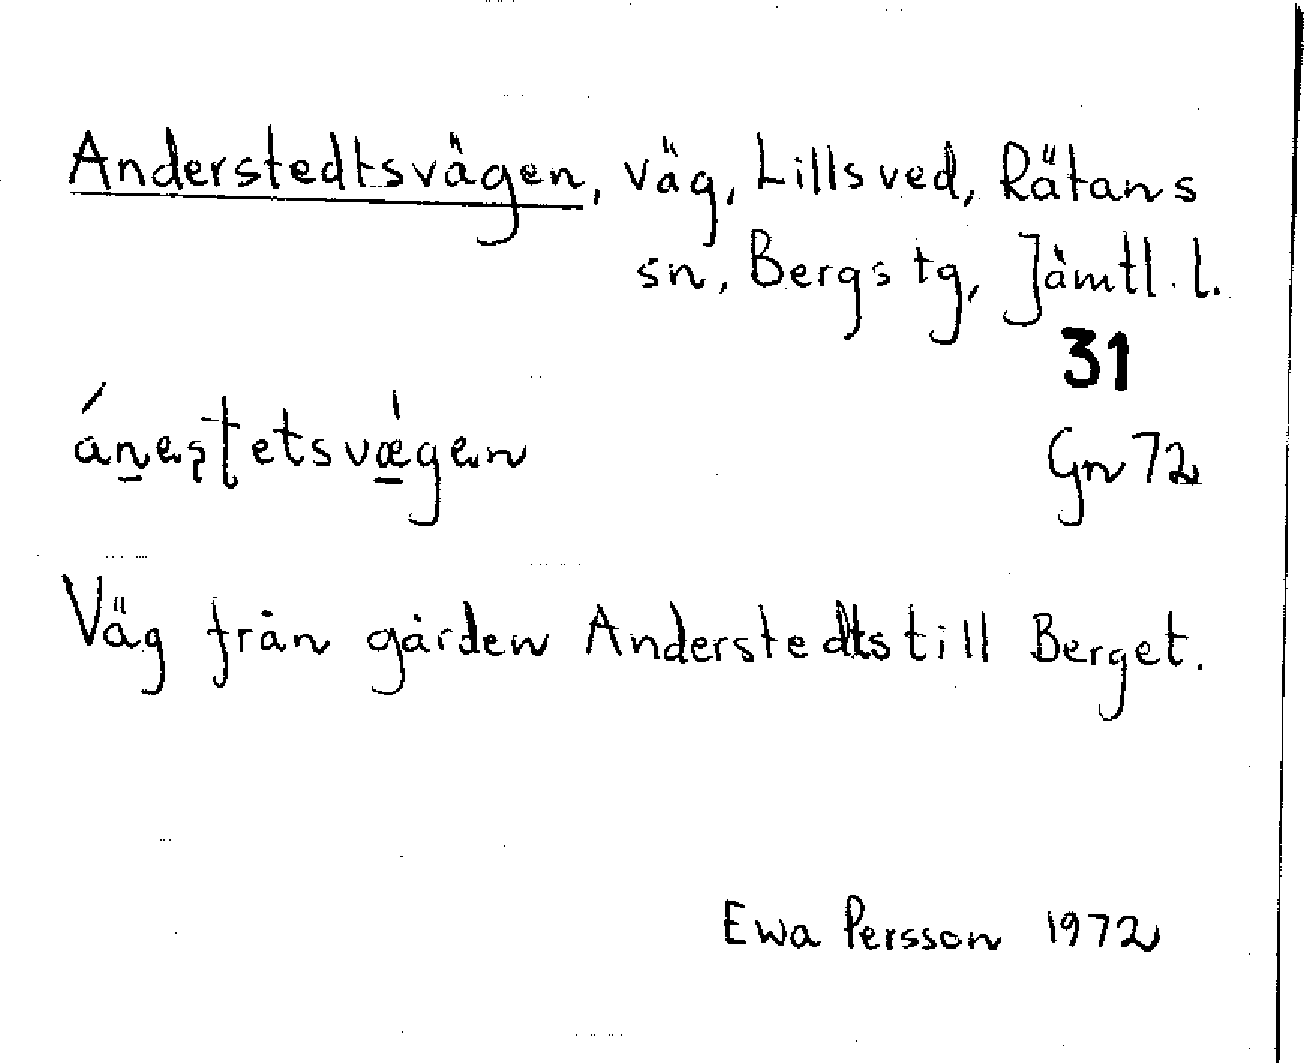 Anderstedtsvägen, väg, Lillsved, Rätans
sn, Bergs tg, Jämtl. l.
31
Gn 72
Väg från gården Anderstedts till Berget.
Ewa Persson 1972